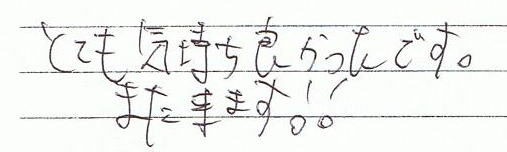 とても気持ち良かったです。
また来ます!!